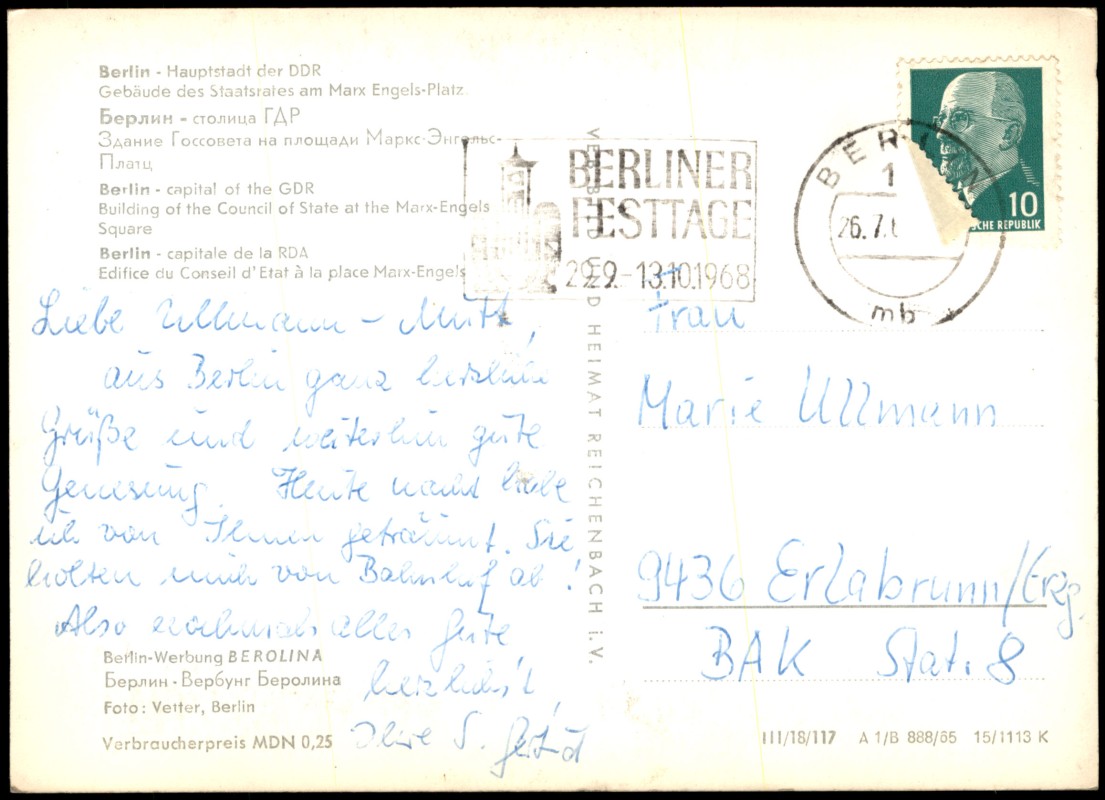 Berlin - Hauptstadt der DDR
Gebäude des Staatsrates am Marx Engels-Platz
Берлин - столица ГДР
Здание Госсовета на площади Маркс-Энгельс-
Платц
Berlin - capital of the GDR
Building of the Council of State at the Marx-Engels
Square
Berlin - capitale de la RDA
Edifice du Conseil d'Etat à la place Marx-Engels
BERLINER
FESTTAGE
29.9.-13.10.1968
BERLIN
1
26.7.
mb
10
SCHE REPUBLIK
Liebe Ullmann-Mutti,
aus Berlin ganz herzliche
Grüße und weiterhin gute
Genesung. Heute nacht habe
ich von Ihnen geträumt. Sie
holten mich von Bahnhof ab!
Also nochmals alles Gute,
herzlichst,
Ihre S.
Berlin-Werbung BEROLINA
Берлин-Вербунг Беролина
Foto: Vetter, Berlin
Verbraucherpreis MDN 0,25
VEB BILD UND HEIMAT REICHENBACH i.V.
Frau
Marie Ullmann
9436 Erlabrunn/Erzg.
BAK Stat. 8
III/18/117 A 1/B 888/65 15/1113 K